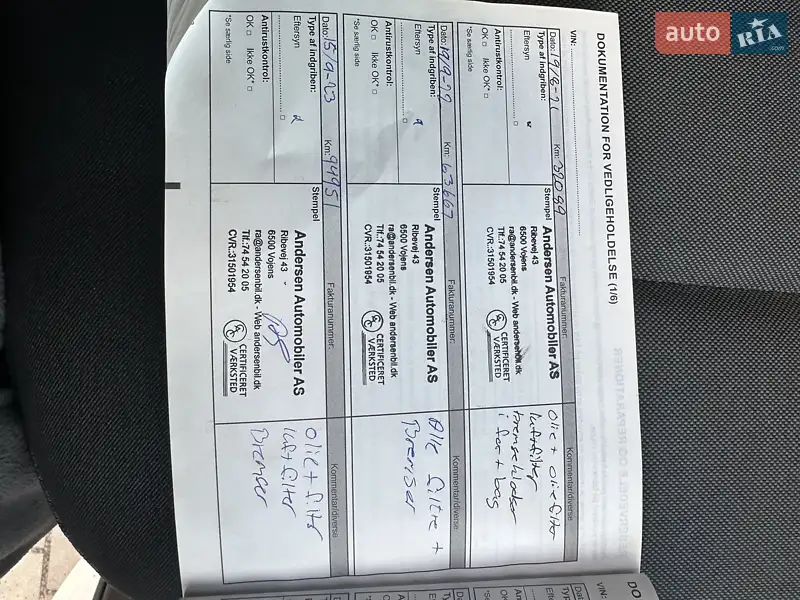 DOKUMENTATION FOR VEDLIGEHOLDELSE (1/6)
VIN:
Dato: 19/8-21 Km: 39099 Fakturanummer: Kommentar/diverse
Type af indgriben: Stempel
Eftersyn
Antirustkontrol:
OK □ Ikke OK* □
*Se særlig side
Andersen Automobiler AS
Ribevej 43
6500 Vojens
ra@andersenbil.dk - Web andersenbil.dk
Tlf.:74 54 20 05
CVR.:31501954
CERTIFICERET
VÆRKSTED
olie + oliefilter
luftfilter
bremseklodser
i for + bag
Dato: 19/9-22 Km: 63667 Fakturanummer: Kommentar/diverse
Type af indgriben: Stempel
Eftersyn
Antirustkontrol:
OK □ Ikke OK* □
*Se særlig side
Andersen Automobiler AS
Ribevej 43
6500 Vojens
ra@andersenbil.dk - Web andersenbil.dk
Tlf.:74 54 20 05
CVR.:31501954
CERTIFICERET
VÆRKSTED
Alle filtre +
Bremser
Dato: 15/9-23 Km: 94951 Fakturanummer: Kommentar/diverse
Type af indgriben: Stempel
Eftersyn
Antirustkontrol:
OK □ Ikke OK* □
*Se særlig side
Andersen Automobiler AS
Ribevej 43
6500 Vojens
ra@andersenbil.dk - Web andersenbil.dk
Tlf.:74 54 20 05
CVR.:31501954
CERTIFICERET
VÆRKSTED
olie + filter
luftfilter
Bremser
DO
VIN:
auto RIA